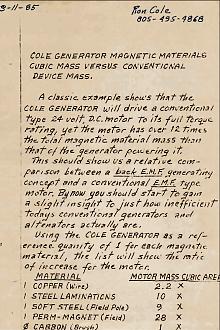 9-11-85
Ron Cole
805-495-4868
COLE GENERATOR MAGNETIC MATERIALS
CUBIC MASS VERSUS CONVENTIONAL
DEVICE MASS.
A classic example shows that the
COLE GENERATOR will drive a conventional
type 24 volt, D.C. motor to its full torque
rating, yet the motor has over 12 times
the total magnetic material mass than
that of the generator powering it.
This should show us a relative com-
parison between a back E.M.F. generating
concept and a conventional E.M.F. type
motor. By now you should start to gain
a slight insight to just how inefficient
todays conventional generators and
alternators actually are.
Using the COLE GENERATOR as a ref-
erence quanity of 1 for each magnetic
material, the list will show the ratio
of increase for the motor.
MATERIAL MOTOR MASS CUBIC AREA
1 COPPER (Wire) 2.2 X
1 STEEL LAMINATIONS 10 X
1 SOFT STEEL (Field Pole) 2 X
1 PERM-MAGNET (Field) 28 X
Ø CARBON (Brush) 1 X